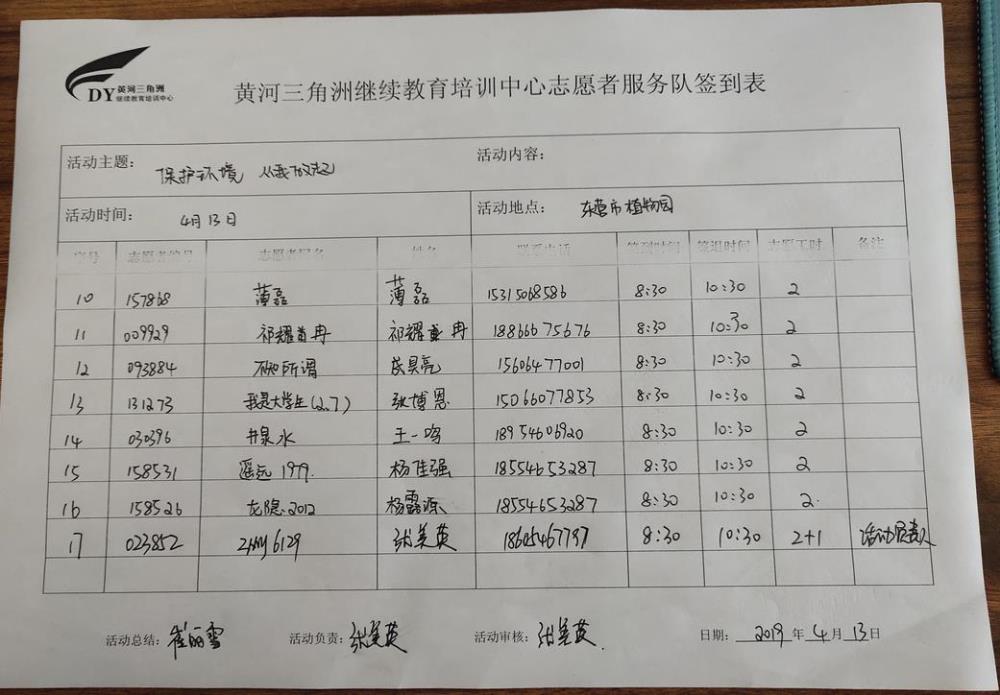 DY 黄河三角洲
继续教育培训中心
黄河三角洲继续教育培训中心志愿者服务队签到表
活动主题: 保护环境 从我做起 活动内容:
活动时间: 4月13日 活动地点: 东营市植物园
序号 志愿者编号 志愿者昵名 姓名 联系电话 签到时间 签退时间 志愿工时 备注
10 157868 薄磊 薄磊 15315068586 8:30 10:30 2
11 009929 祁耀 冉 祁耀 冉 18866675676 8:30 10:30 2
12 093884 所谓 成昊亮 15606477001 8:30 10:30 2
13 131273 我是大学生(2.7) 张博恩 15066077853 8:30 10:30 2
14 030396 井泉水 王一鸣 18954606920 8:30 10:30 2
15 158531 遥远1979. 杨佳强 18554653287 8:30 10:30 2
16 158526 龙隐.2012 杨露源 18554653287 8:30 10:30 2.
17 023852 zmy6129 张美英 18605467797 8:30 10:30 2+1 活动负责人
活动总结: 崔丽雪 活动负责: 张美英 活动审核: 张美英. 日期: 2019年4月13日